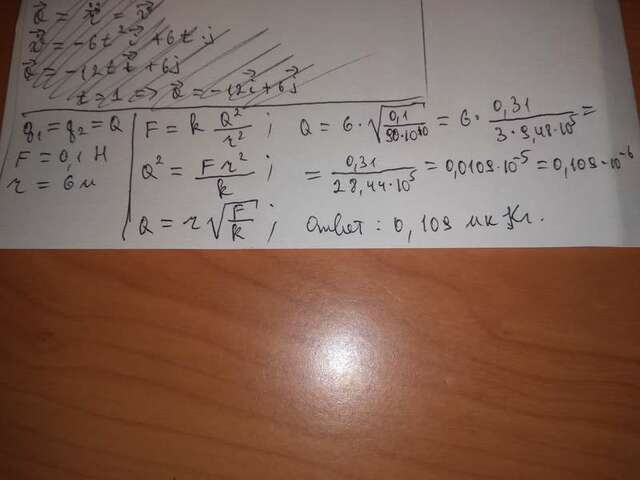 a⃗ = r⃗̈ = v⃗̇
v⃗ = -6t² i⃗ + 6t j⃗
a⃗ = -12t i⃗ + 6j⃗
t=1 => a⃗ = -12i⃗+6j⃗
q₁ = q₂ = Q
F = 0,1 H
r = 6 м
F = k Q²/r² ;
Q² = F r²/k ;
Q = r √(F/k) ;
Q = 6 · √(0,1/(90·10¹⁰)) = 6 · 0,31/(3·9,48·10⁵) =
= 0,31/(28,44·10⁵) = 0,0109·10⁻⁵ = 0,109·10⁻⁶
Ответ: 0, 109 мк Кл.